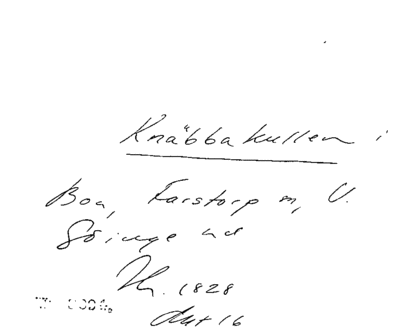 Knäbbakullen i
Boa, Farstorp sn, V.
Göinge hd
1828
Aut 16